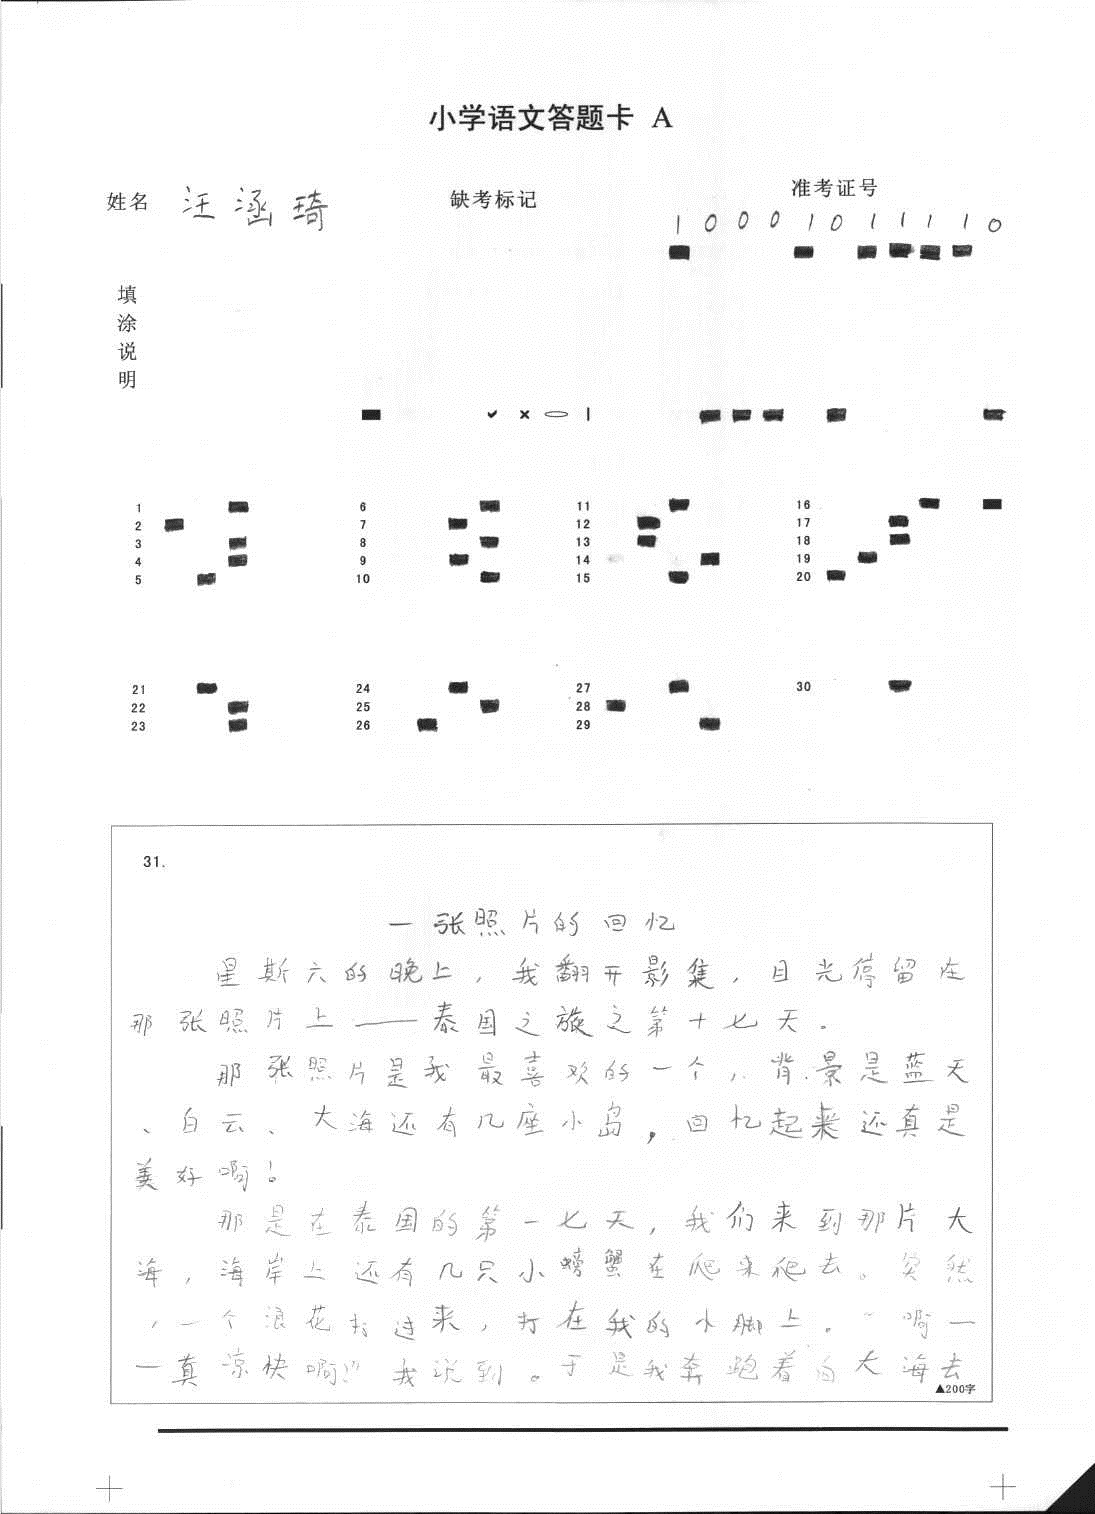 小学语文答题卡 A
姓名 汪涵琦 缺考标记 准考证号
1 0 0 0 1 0 1 1 1 1 0
填
涂
说
明
1 6 11 16
2 7 12 17
3 8 13 18
4 9 14 19
5 10 15 20
21 24 27 30
22 25 28
23 26 29
31.
一张照片的回忆
星斯六的晚上，我翻开影集，目光停留在
那张照片上——泰国之旅之第十七天。
那张照片是我最喜欢的一个，背景是蓝天
、白云、大海还有几座小岛，回忆起来还真是
美好啊！
那是在泰国的第一七天，我们来到那片大
海，海岸上还有几只小螃蟹在爬来爬去。突然
，一个浪花打过来，打在我的小脚上。“啊一
一真凉快啊！”我说到。于是我奔跑着向大海去
▲200字